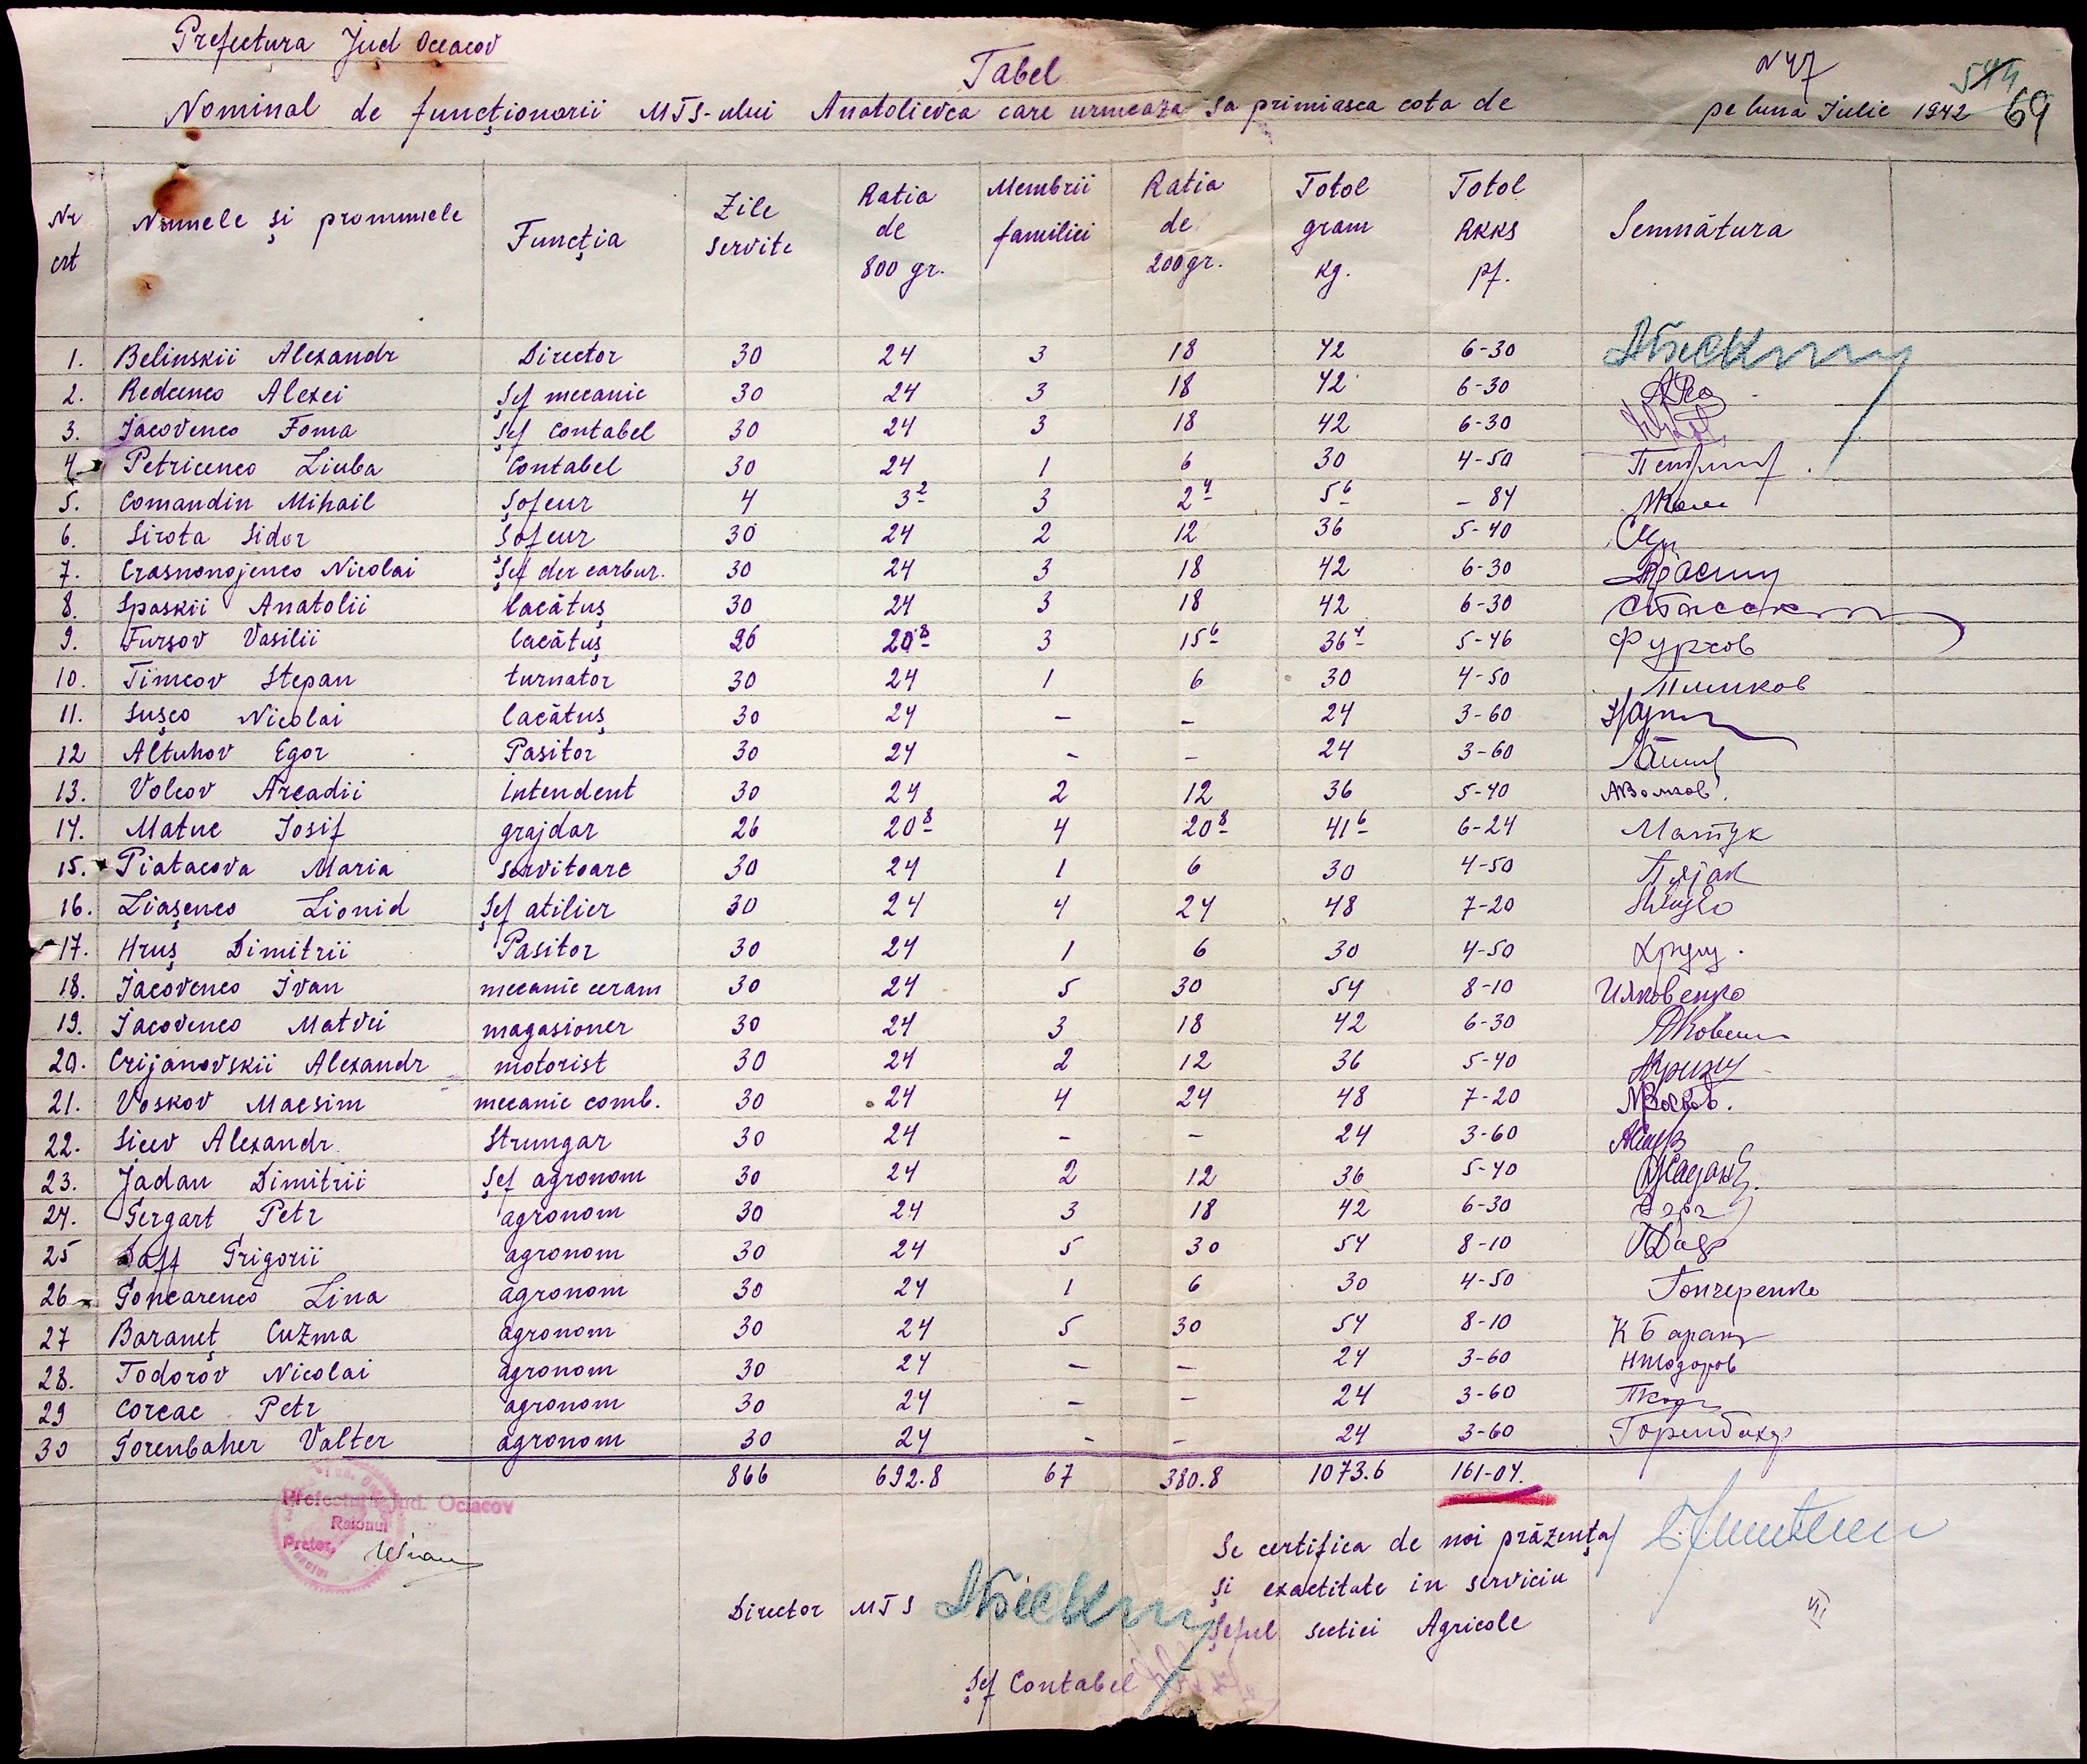 Prefectura Jud Oceacov
Tabel
N 47
544
Nominal de funcționarii MTS-ului Anatolievca care urmeaza sa primiasca cota de pe luna Iulie 1942 69
Nr crt Numele și pronumele Funcția Zile servite Ratia de 800 gr. Membrii familiei Ratia de 200 gr. Totol gram kg. Totol RKKS pf. Semnătura
1. Belinskii Alexandr Director 30 24 3 18 42 6-30
2. Redcenco Alexei Șef mecanic 30 24 3 18 42 6-30
3. Jacovenco Foma Șef Contabel 30 24 3 18 42 6-30
4 Petricenco Liuba Contabel 30 24 1 6 30 4-50
5. Comandin Mihail Șofeur 4 3 2 3 2 4 5 6 - 84
6. Sirota Sidor Șofeur 30 24 2 12 36 5-40
7. Crasnonojenco Nicolai Șef der carbur. 30 24 3 18 42 6-30
8. Spaskii Anatolii lacătuș 30 24 3 18 42 6-30
9. Fursov Vasilii lacătuș 26 20 8 3 15 6 36 4 5-46 Фурсов
10. Timcov Stepan turnator 30 24 1 6 30 4-50 Тимков
11. Sușco Nicolai lacătuș 30 24 - - 24 3-60
12 Altuhov Egor Pasitor 30 24 - - 24 3-60
13. Volcov Arcadii intendent 30 24 2 12 36 5-40 АВолков
14. Matuc Josif grajdar 26 20 8 4 20 8 41 6 6-24 Матук
15. Piatacova Maria servitoare 30 24 1 6 30 4-50
16. Liașenco Lionid Șef atilier 30 24 4 24 48 7-20
17. Hruș Dimitrii Pasitor 30 24 1 6 30 4-50 Хрущ.
18. Jacovenco Ivan mecanic ceram 30 24 5 30 54 8-10 ИЯковенко
19. Jacovenco Matvei magasioner 30 24 3 18 42 6-30
20. Crijanovskii Alexandr motorist 30 24 2 12 36 5-40
21. Voskov Macsim mecanic comb. 30 24 4 24 48 7-20 МВосков.
22. Sicev Alexandr Strungar 30 24 - - 24 3-60
23. Jadan Dimitrii Șef agronom 30 24 2 12 36 5-40
24. Gergart Petr agronom 30 24 3 18 42 6-30
25 Daff Grigorii agronom 30 24 5 30 54 8-10
26 Goncarenco Lina agronom 30 24 1 6 30 4-50 Гончеренко
27 Baraneț Cuzma agronom 30 24 5 30 54 8-10 К Баранец
28. Todorov Nicolai agronom 30 24 - - 24 3-60 Нтодоров
29 Corcac Petr agronom 30 24 - - 24 3-60
30 Gorenbaher Valter agronom 30 24 - - 24 3-60 Горенбахер
866 692.8 67 380.8 1073.6 161-04.
Prefectura Jud. Ociacov
Raionul
Pretor,
Se certifica de noi prăzența
și exactitate in serviciu
Director MTS
Șeful sectiei Agricole
Șef Contabel